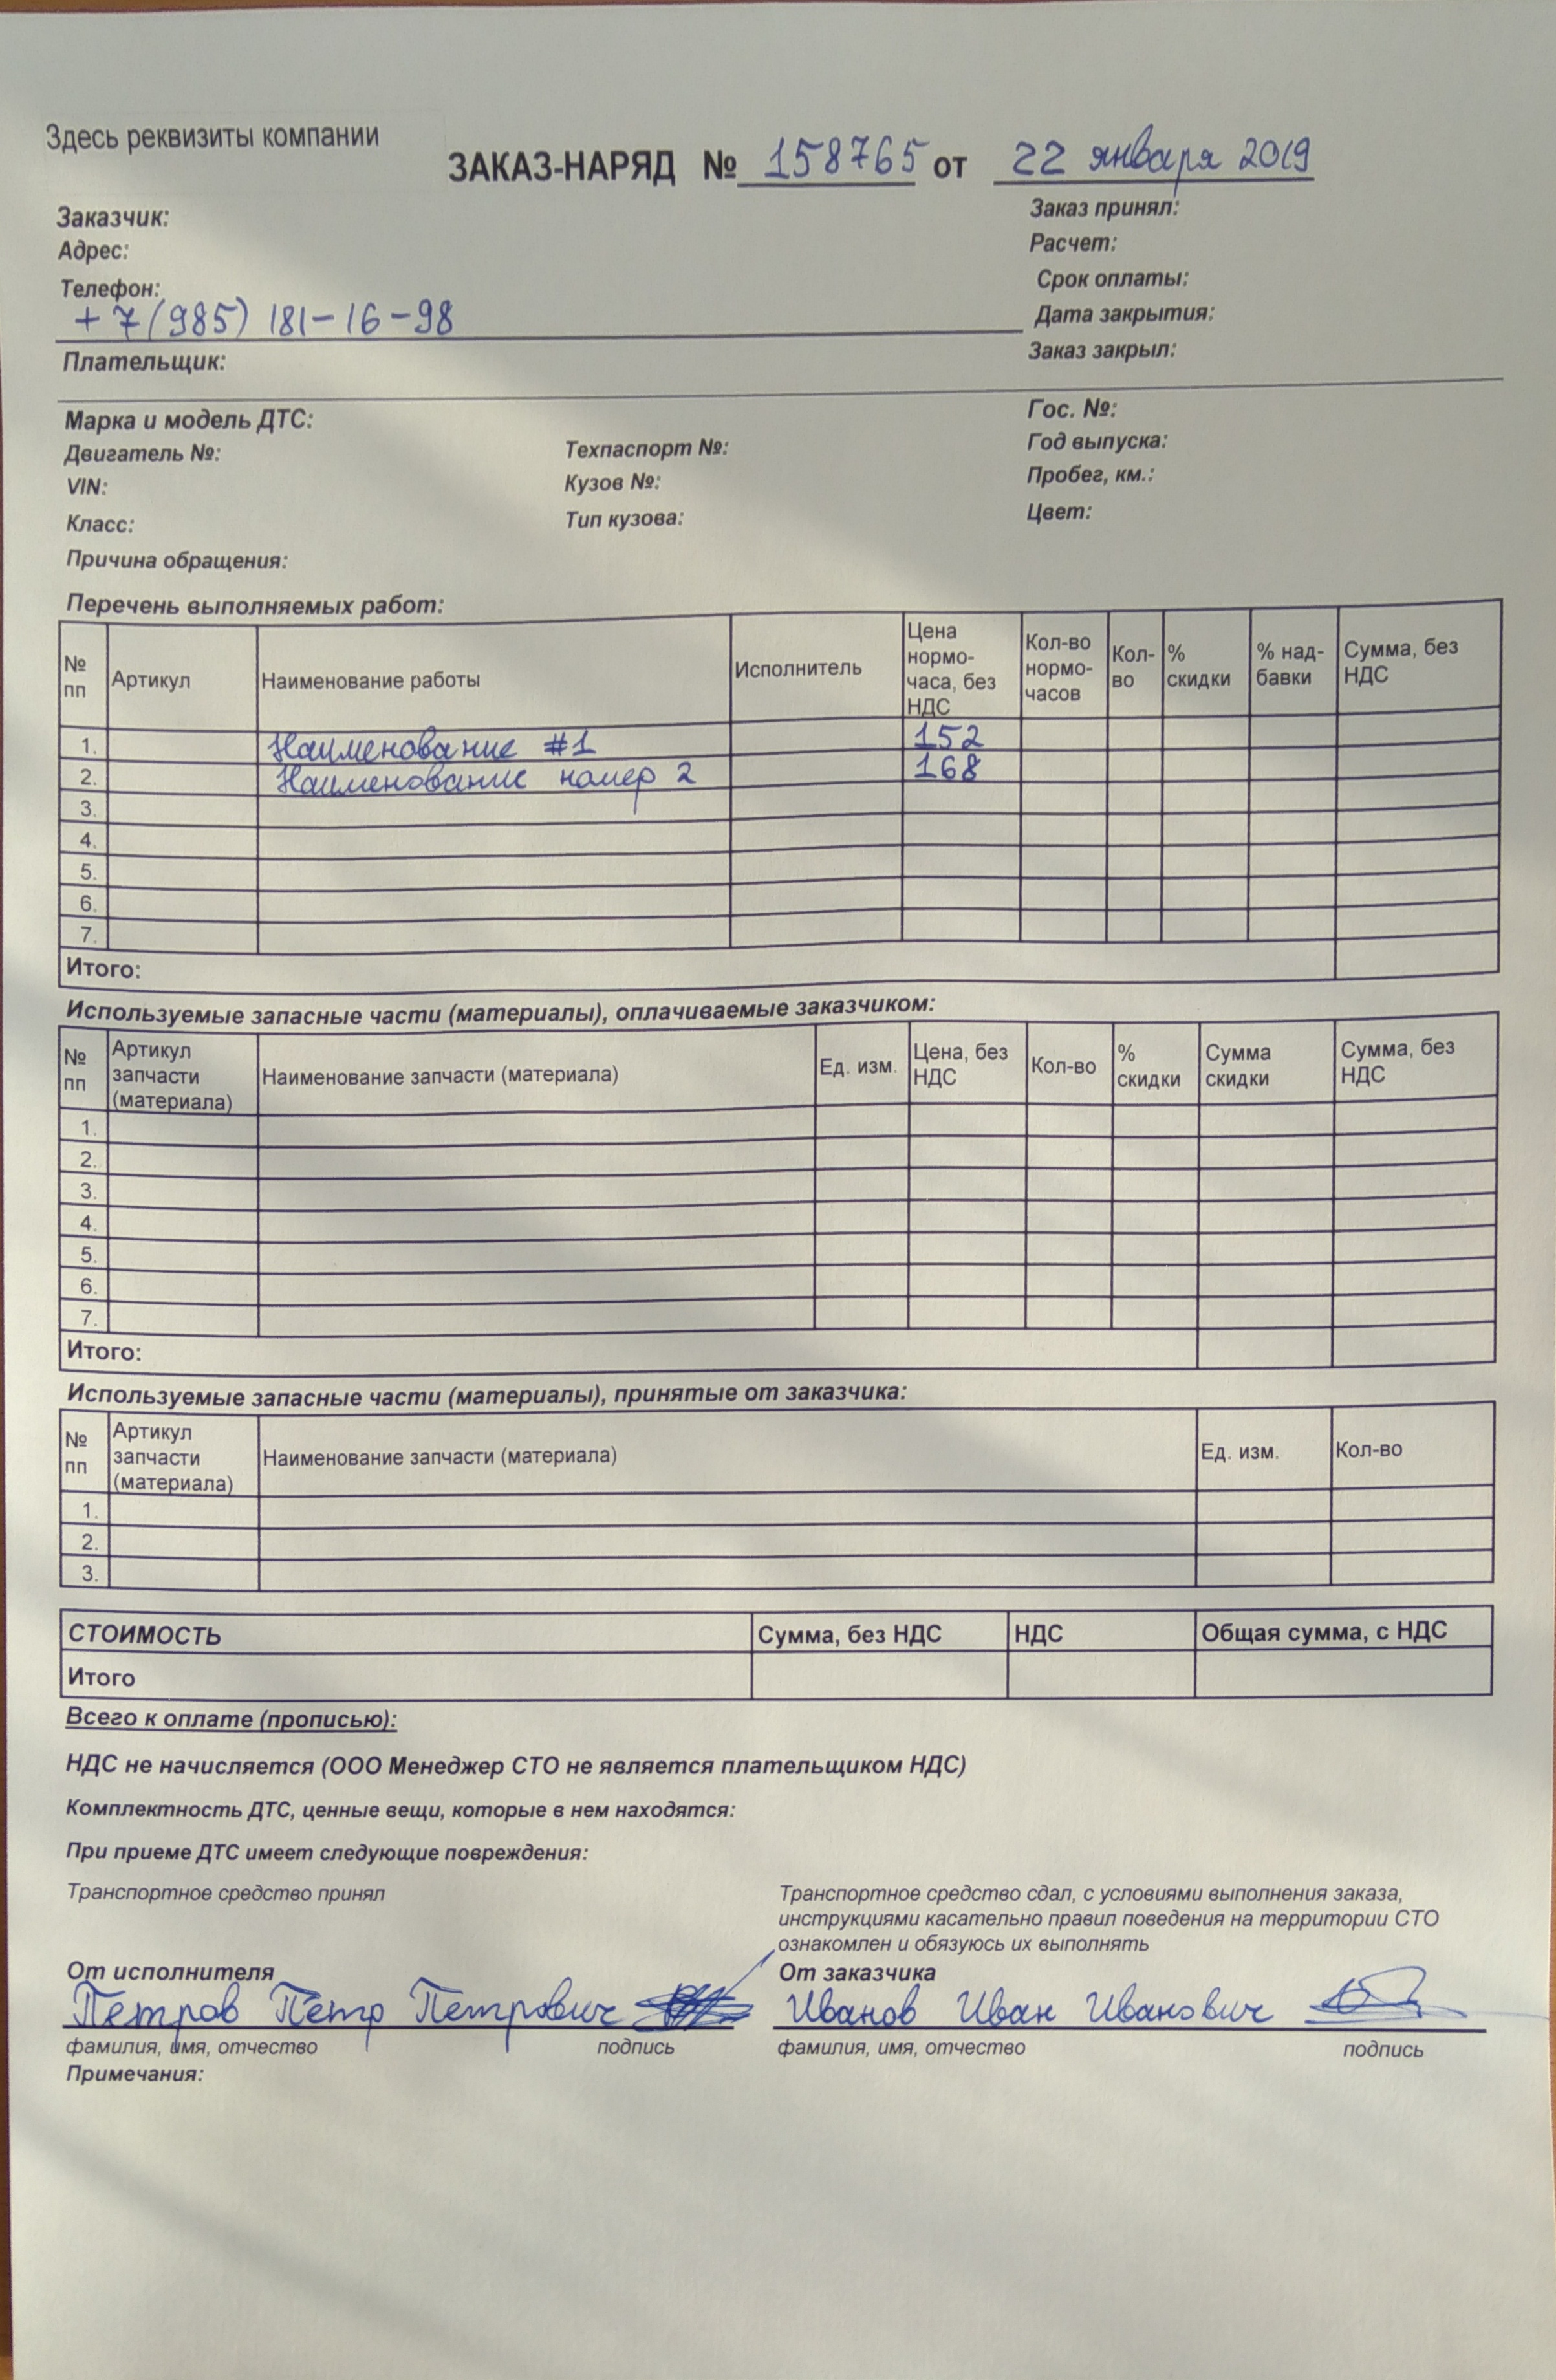 Здесь реквизиты компании
ЗАКАЗ-НАРЯД № 158765 от 22 января 2019
Заказчик:
Адрес:
Телефон:
+7(985) 181-16-98
Плательщик:
Заказ принял:
Расчет:
Срок оплаты:
Дата закрытия:
Заказ закрыл:
Марка и модель ДТС:
Гос. №:
Двигатель №:
Техпаспорт №:
Год выпуска:
VIN:
Кузов №:
Пробег, км.:
Класс:
Тип кузова:
Цвет:
Причина обращения:
Перечень выполняемых работ:
№ пп
Артикул
Наименование работы
Исполнитель
Цена нормо-часа, без НДС
Кол-во нормо-часов
Кол-во
% скидки
% над-бавки
Сумма, без НДС
1. Наименование #1 152
2. Наименование номер 2 168
3.
4.
5.
6.
7.
Итого:
Используемые запасные части (материалы), оплачиваемые заказчиком:
№ пп
Артикул запчасти (материала)
Наименование запчасти (материала)
Ед. изм.
Цена, без НДС
Кол-во
% скидки
Сумма скидки
Сумма, без НДС
1.
2.
3.
4.
5.
6.
7.
Итого:
Используемые запасные части (материалы), принятые от заказчика:
№ пп
Артикул запчасти (материала)
Наименование запчасти (материала)
Ед. изм.
Кол-во
1.
2.
3.
СТОИМОСТЬ
Сумма, без НДС
НДС
Общая сумма, с НДС
Итого
Всего к оплате (прописью):
НДС не начисляется (ООО Менеджер СТО не является плательщиком НДС)
Комплектность ДТС, ценные вещи, которые в нем находятся:
При приеме ДТС имеет следующие повреждения:
Транспортное средство принял
Транспортное средство сдал, с условиями выполнения заказа,
инструкциями касательно правил поведения на территории СТО
ознакомлен и обязуюсь их выполнять
От исполнителя
Петров Петр Петрович
фамилия, имя, отчество подпись
От заказчика
Иванов Иван Иванович
фамилия, имя, отчество подпись
Примечания: